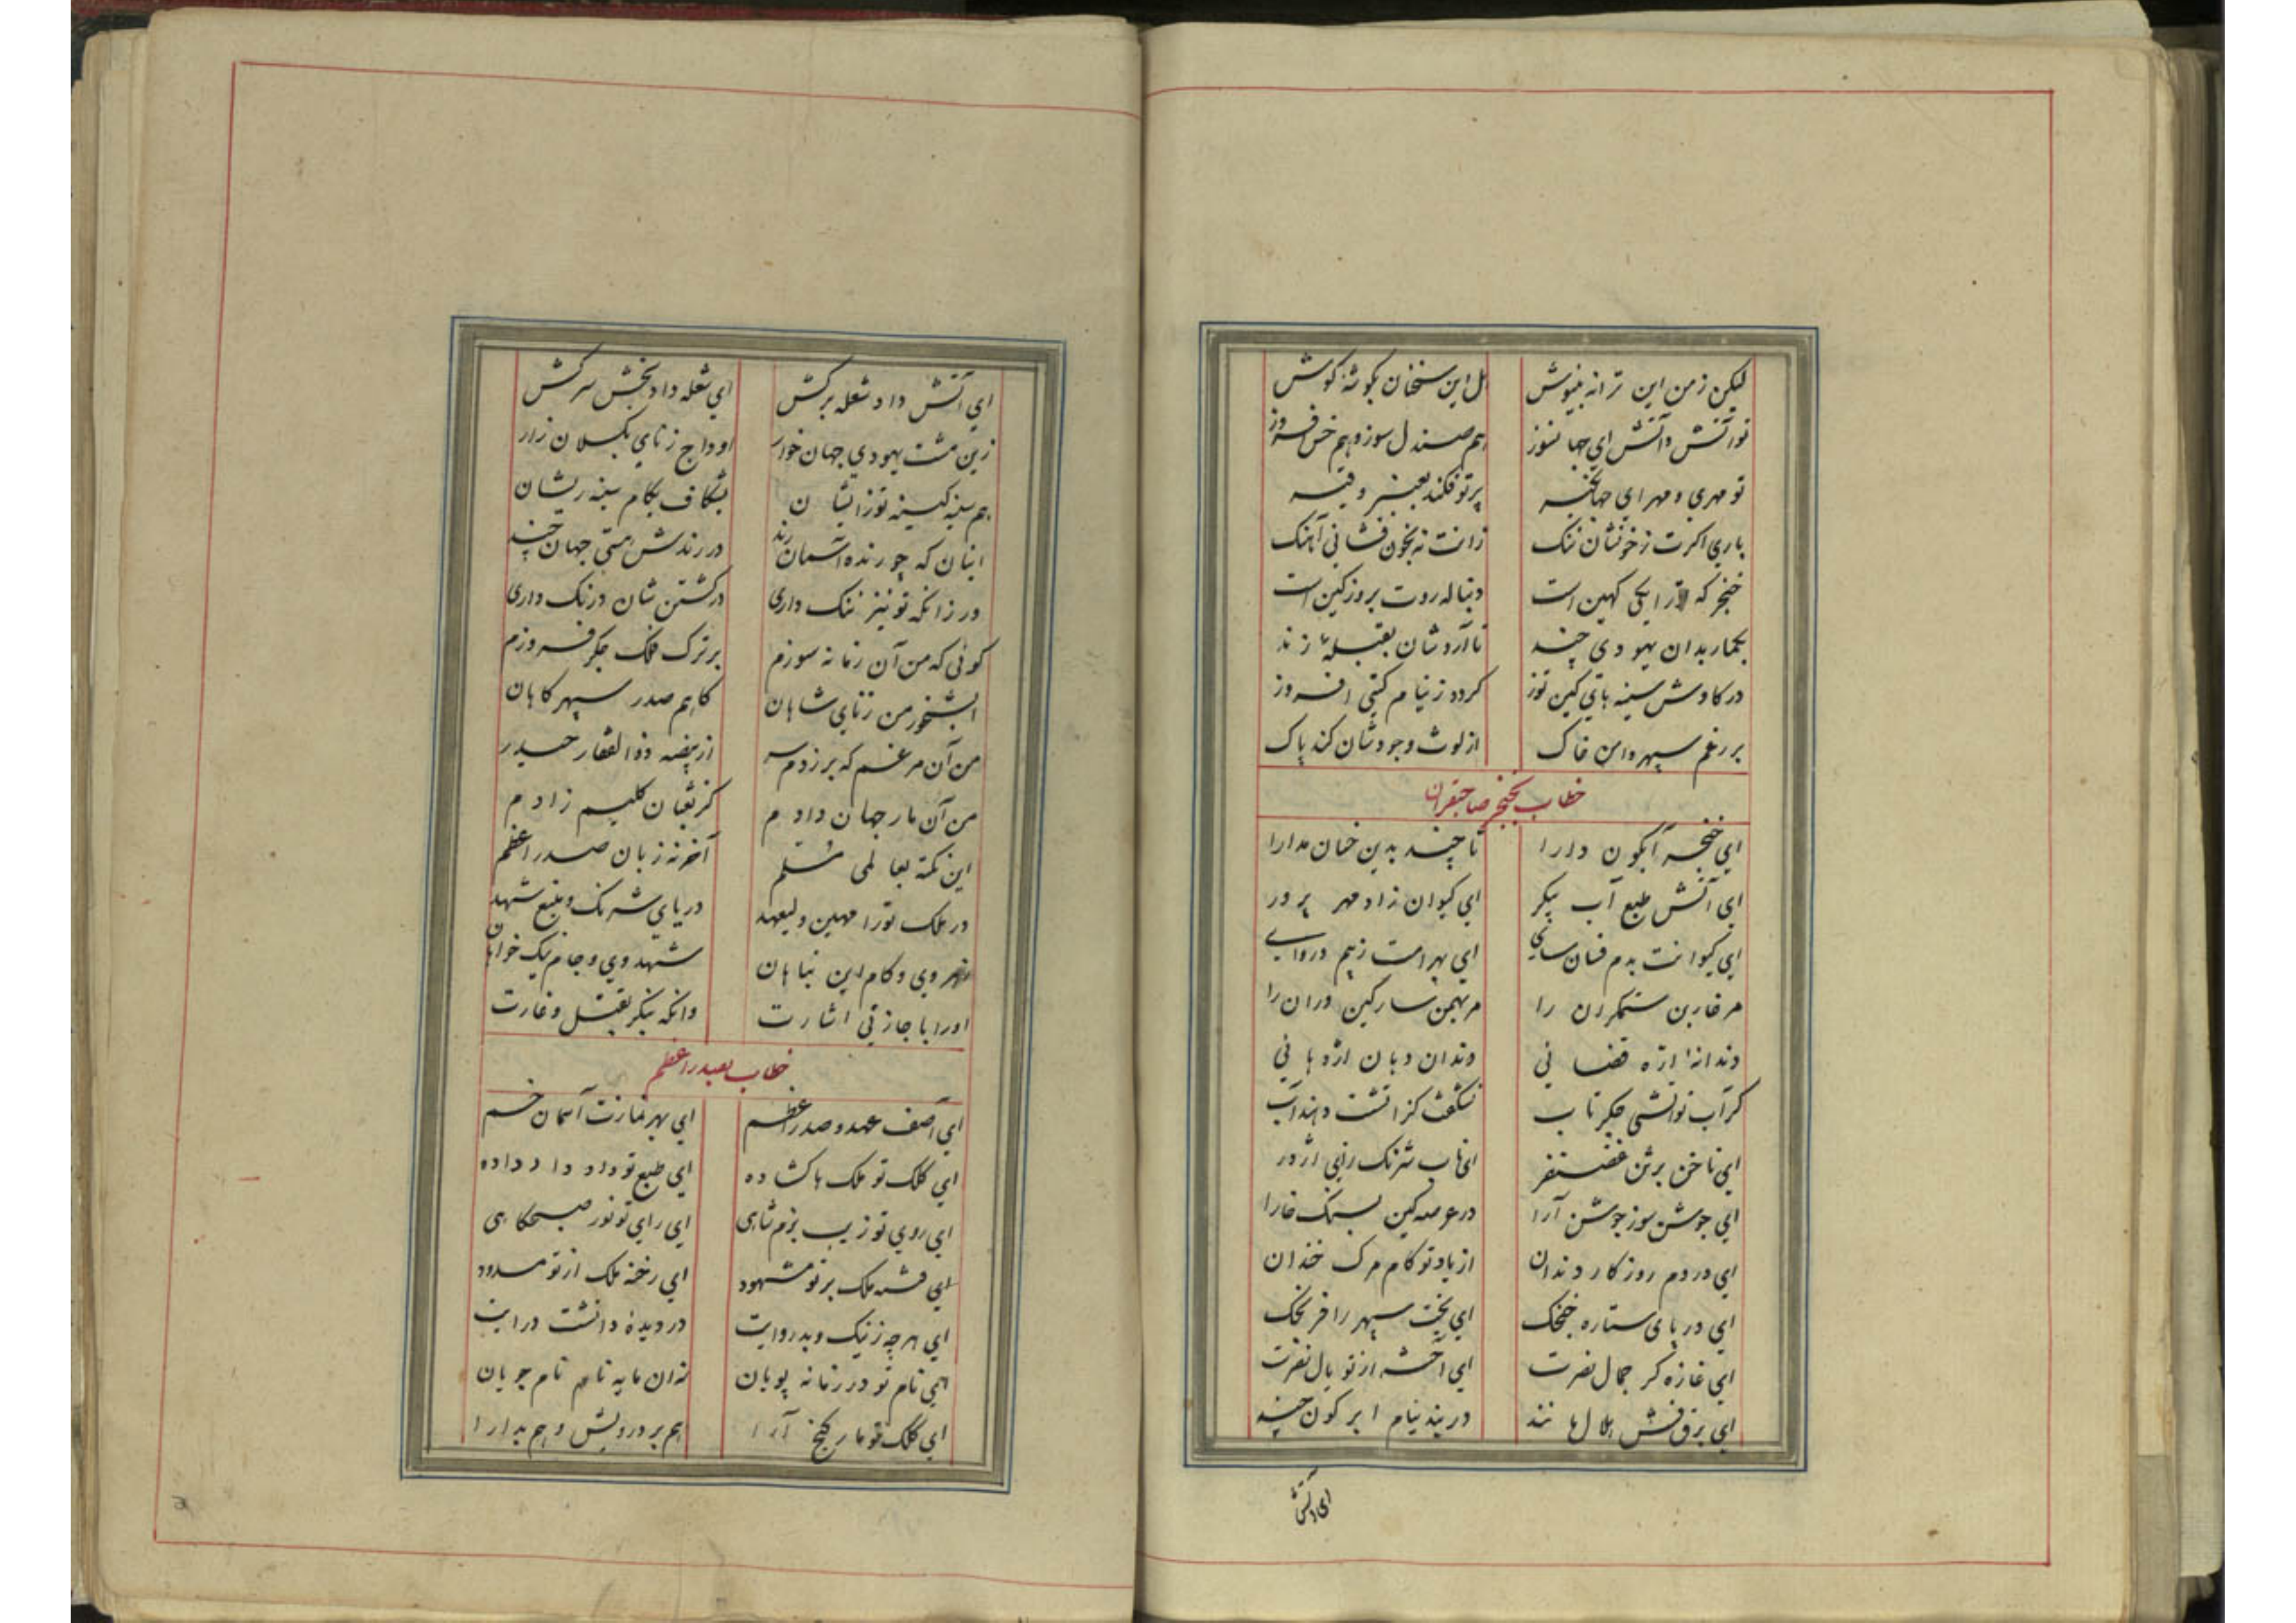 لیکن زمن این ترانه بنیوش
هل این سخنان بگوشهٔ گوش
تو آتش و آتش ای جهانسوز
هم صندل سوزد و هم خس افروز
تو مهری و مهر ای جهانگیر
پرتو فکند بعنبر و قیر
باری اگرت زخونشان ننگ
زانت نه بخون فشانی آهنگ
خنجر که ترا یکی کهین است
دنباله روت بروز کین است
بگمار بدان یهودی چند
تا آردشان بقبله
در کاوش سینه
گردد زنیام گیتی افروز
بر رغم سپهر دامن خاک
از لوث وجودشان کند پاک
خطاب بخنجر صاحبقران
ای خنجر آبگون دارا
تا چند بدین خسان مدارا
ای آتش طبع آب پیکر
ای کیوان زاد مهر پرور
ای کیوانت بدم فسان سای
ای بهرامت زبیم دروای
مر غاربن ستمگران را
مر بهمن سار کین وران را
دندانهٔ ارهٔ قضائی
دندان دهان اژدهائی
کر آب تو آتشی جگر تاب
نشگفت کز آتشت دهند آب
ای ناخن برثن غضنفر
ای ناب شرنگ زای اژدر
ای جوشن سوز جوشن آرا
در عرصه کین بسنگ خارا
ای در دم روزگار دندان
از یاد تو کام مرگ خندان
ای در پای ستاره خنجک
ای بخت سپهر را فرنجک
ای غازه گر جمال نصرت
ای از تو بال نصرت
ای برق فش هلال مانند
در بند نیام ابر گون چند
ای آتش
ای آتش داد شعله برکش
ای شعله داد بخش سرکش
زین مشت یهودی جهان خوار
اوداج زنای بگسلان زار
هم سینه کینه توز ایشان
بشکاف بکام سینه ریشان
اینان که چو رنده آسمان رند
در رندش هستی جهان چند
ور زانکه تو نیز ننگ داری
در کشتن شان درنگ داری
گوئی که من آن زمانه سوزم
بر ترک فلک جگر فروزم
آبشخور من زنای شاهان
گاهم صدر سپهر گاهان
من آن مرغم که برزدم سر
از بیضه ذوالفقار حیدر
من آن مار جهان دادم
کز ثعبان کلیم زادم
این نکته بعالمی مسلم
آخر نه زبان صدر اعظم
در ملک تورا مهین ولیعهد
دریای شرنگ و منبع شهد
زهر وی و کام این تباهان
شهد وی و جام نیک خواهان
او را باجازتی اشارت
وانگه بنگر بقتل و غارت
خطاب بصدر اعظم
ای آصف عهد و صدر اعظم
ای بهر نمازت آسمان خم
ای کلک تو ملک ها گشاده
ای طبع تو داد داد داده
ای روی تو زیب بزم شاهی
ای رای تو نور صبحگاهی
ای فتنه ملک بر تو مشهود
ای رخنه ملک از تو مسدود
ای هر چه زنیک و بد روایت
در دیدهٔ دانشت درایت
ای نام تو در زمانه پویان
نه زان مایه نام نام جویان
ای کلک تو مار گنج آرا
هم بر درویش و هم بدارا